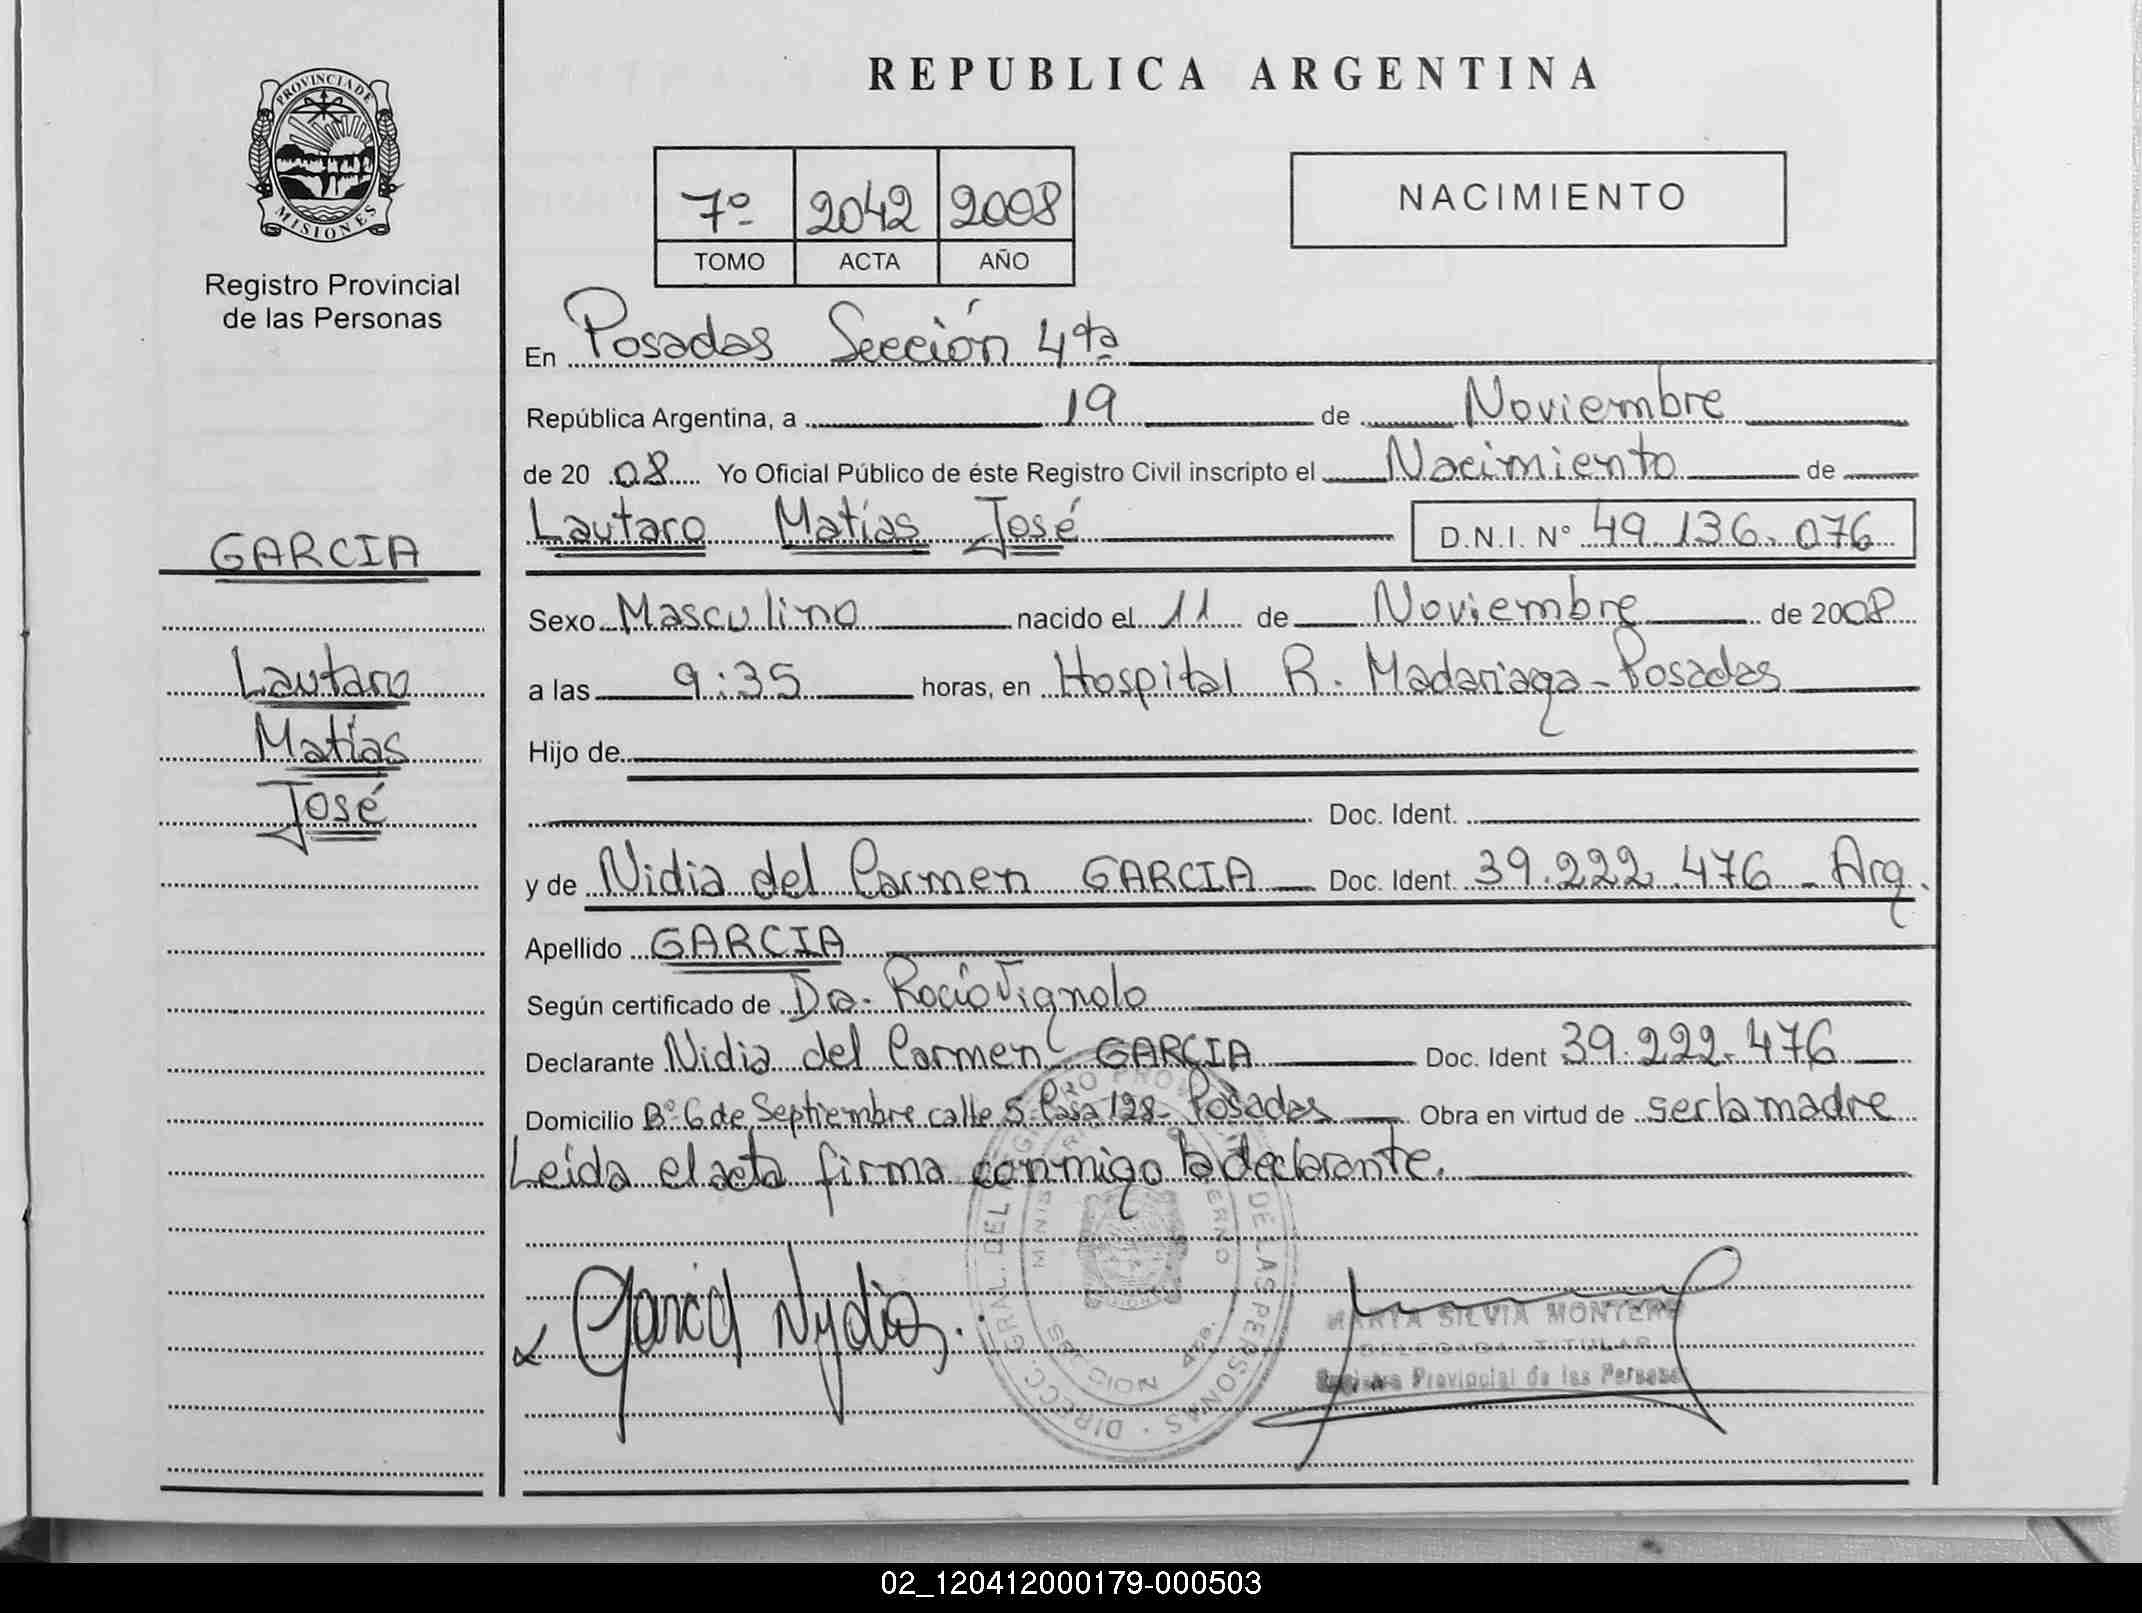 REPUBLICA ARGENTINA
PROVINCIA DE MISIONES
Registro Provincial
de las Personas
7º 2042 2008
TOMO ACTA AÑO
NACIMIENTO
En Posadas Sección 4ta
República Argentina, a 19 de Noviembre
de 2008 Yo Oficial Público de éste Registro Civil inscripto el Nacimiento de
Lautaro Matías José D.N.I. Nº 49.136.076
GARCIA
Lautaro
Matías
José
Sexo Masculino nacido el 11 de Noviembre de 2008
a las 9:35 horas, en Hospital R. Madariaga - Posadas
Hijo de
Doc. Ident.
y de Nidia del Carmen GARCIA Doc. Ident. 39.222.476 - Arg.
Apellido GARCIA
Según certificado de Dra. Rocío Vignolo
Declarante Nidia del Carmen GARCIA Doc. Ident 39.222.476
Domicilio Bº 6 de Septiembre calle 5 Casa 128 - Posadas Obra en virtud de ser la madre
Leída el acta firma conmigo la declarante.
Garcia Nydia
DIRECC. GRAL. DEL DE LAS PERSONAS
MARTA SILVIA MONTERO
DELEGADA TITULAR
Registro Provincial de las Personas
02_120412000179-000503